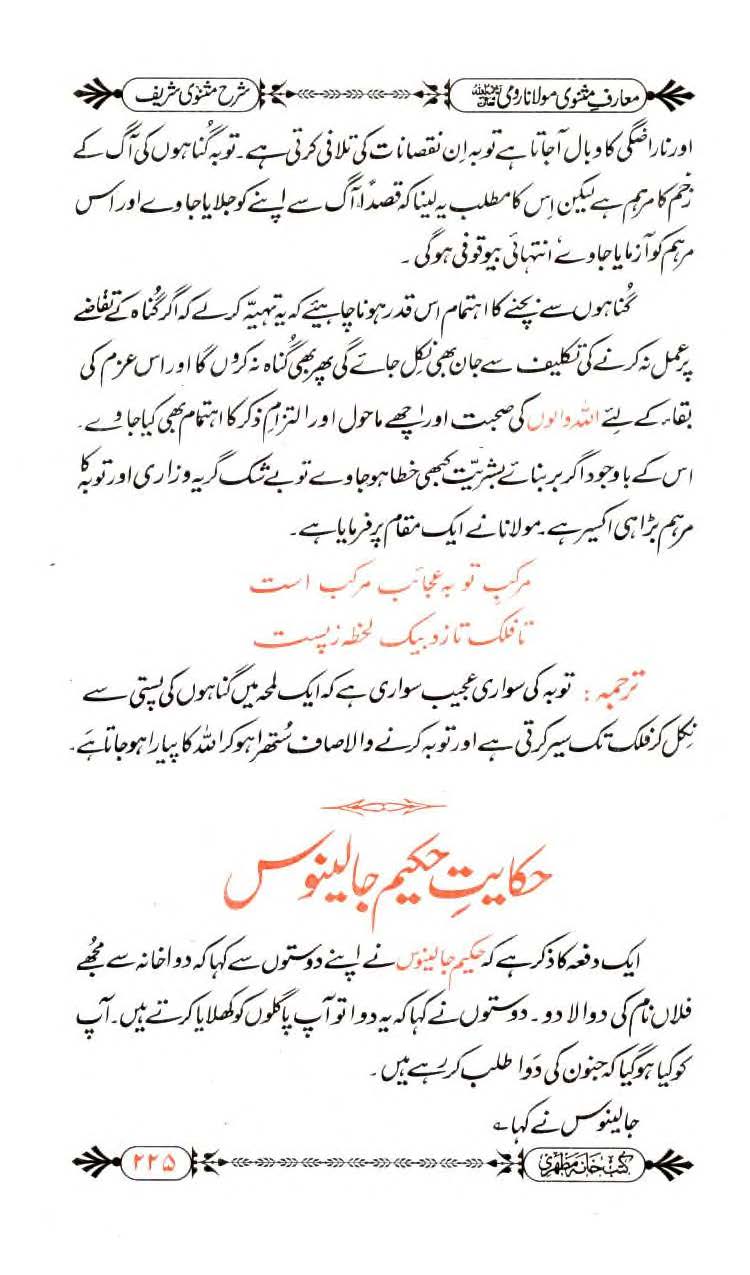 معارفِ مثنوی مولانا رومی
شرح مثنوی شریف
اور ناراضگی کا وبال آجاتا ہے توبہ اِن نقصانات کی تلافی کرتی ہے۔ توبہ گناہوں کی آگ کے
زخم کا مرہم ہے لیکن اِس کا مطلب یہ لینا کہ قصداً آگ سے اپنے کو جلایا جاوے اور اس
مرہم کو آزمایا جاوے انتہائی بیوقوفی ہوگی ۔
گُناہوں سے بچنے کا اہتمام اس قدر ہونا چاہیئے کہ یہ تہیہّ کرلے کہ اگر گُناہ کے تقاضے
پر عمل نہ کرنے کی تکلیف سے جان بھی نِکل جائے گی پھر بھی گُناہ نہ کروں گا اور اس عزم کی
بقاء کے لئے اللہ والوں کی صحبت اور اچھے ماحول اور التزامِ ذکر کا اہتمام بھی کیا جاوے ۔
اس کے باوجود اگر بر بنائے بشریّت کبھی خطا ہوجاوے تو بے شک گریہ وزاری اور توبہ کا
مرہم بڑا ہی اکسیر ہے۔ مولانا نے ایک مقام پر فرمایا ہے۔
مرکبِ توبہ عجائب مرکب است
تا فلک تازد بیک لحظہ ز پست
ترجمہ : توبہ کی سواری عجیب سواری ہے کہ ایک لمحہ میں گناہوں کی پستی سے
نِکل کر فلک تک سیر کرتی ہے اور توبہ کرنے والا صاف سُتھرا ہوکر اللہ کا پیارا ہوجاتا ہَے۔
حکایتِ حکیم جالینوس
ایک دفعہ کا ذکر ہے کہ حکیم جالینوس نے اپنے دوستوں سے کہا کہ دواخانہ سے مجُھے
فلاں نام کی دوا لا دو ۔ دوستوں نے کہا کہ یہ دوا تو آپ پاگلوں کو کھلایا کرتے ہیں۔ آپ
کو کیا ہوگیا کہ جنون کی دَوا طلب کر رہے ہیں ۔
جالینوس نے کہا ؎
کتب خانہ مظہری
۲۲۵